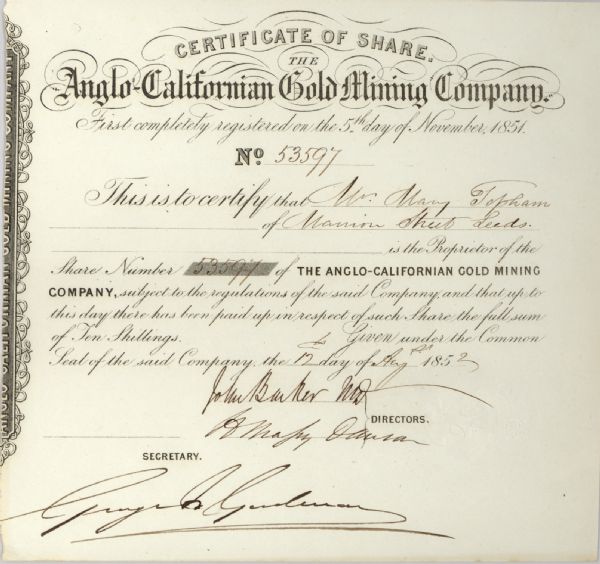 CERTIFICATE OF SHARE.
THE
Anglo-Californian Gold Mining Company.
First completely registered on the 5th day of November, 1851.
No 53597
This is to certify that Mrs. Mary Topham
of Street Leeds.
is the Proprietor of the
Share Number 53597 of THE ANGLO-CALIFORNIAN GOLD MINING
COMPANY, subject to the regulations of the said Company, and that up to
this day there has been paid up in respect of such Share, the full sum
of Ten Shillings. Given under the Common
Seal of the said Company, the 12 day of Augst 1852
John Barker MD
DIRECTORS.
SECRETARY.